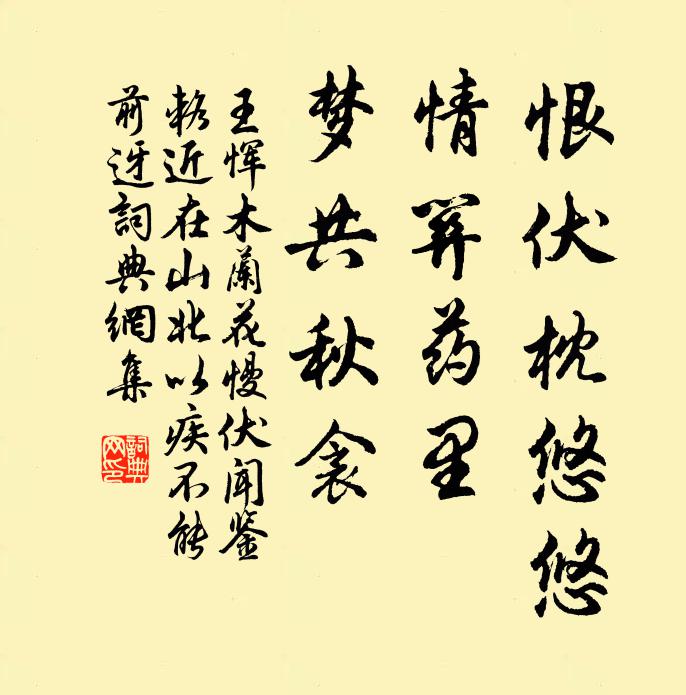 恨伏枕悠悠
情筭药里
梦共秋衾
王恽木蘭花慢伏闻鉴
輅近在山北以疾不能
前迓詞典網集
詞典网印